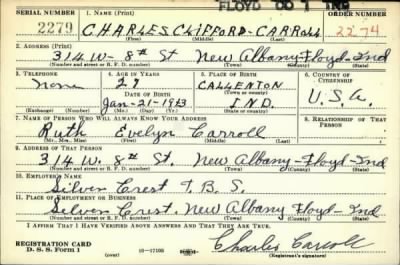 FLOYD CO 1 IND
SERIAL NUMBER 1. NAME (Print) ORDER NUMBER
2279 CHARLES CLIFFORD CARROLL 2274
(First) (Middle) (Last)
2. ADDRESS (Print)
314 W- 8th St New Albany-Floyd-Ind
(Number and street or R. F. D. number) (Town) (County) (State)
3. TELEPHONE 4. AGE IN YEARS 5. PLACE OF BIRTH 6. COUNTRY OF CITIZENSHIP
none 27 CALLENTON U.S.A.
DATE OF BIRTH (Town or county)
Jan-21-1913 IND.
(Exchange) (Number) (Mo.) (Day) (Yr.) (State or country)
7. NAME OF PERSON WHO WILL ALWAYS KNOW YOUR ADDRESS 8. RELATIONSHIP OF THAT PERSON
Ruth Evelyn Carroll
(Mr., Mrs., Miss) (First) (Middle) (Last)
9. ADDRESS OF THAT PERSON
314 W. 8th St. New Albany-Floyd-Ind
(Number and street or R. F. D. number) (Town) (County) (State)
10. EMPLOYER'S NAME
Silver Crest T.B.S.
11. PLACE OF EMPLOYMENT OR BUSINESS
Silver Crest. New Albany Floyd-Ind
(Number and street or R. F. D. number) (Town) (County) (State)
I AFFIRM THAT I HAVE VERIFIED ABOVE ANSWERS AND THAT THEY ARE TRUE.
REGISTRATION CARD
D. S. S. Form 1 (over) 16-17105 Charles Carroll
(Registrant's signature)